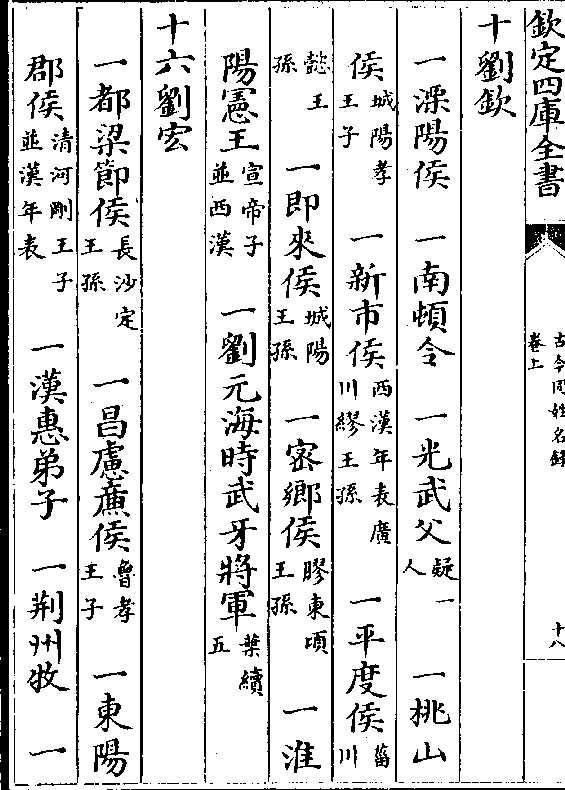 欽定四庫全書
古今同姓名録
卷上
十八
十劉欽
一溧陽侯 一南頓令 一光武父疑一人 一桃山
侯城陽孝王子 一新市侯西漢年表廣川繆王孫 一平度侯菑川
懿王孫 一即來侯城陽王孫 一密鄉侯膠東頃王孫 一淮
陽憲王宣帝子並西漢 一劉元海時武牙將軍葉續五
十六劉宏
一都梁節侯長沙定王孫 一昌慮㢘侯魯孝王子 一東陽
郡侯清河剛王子並漢年表 一漢惠弟子 一荆州牧 一